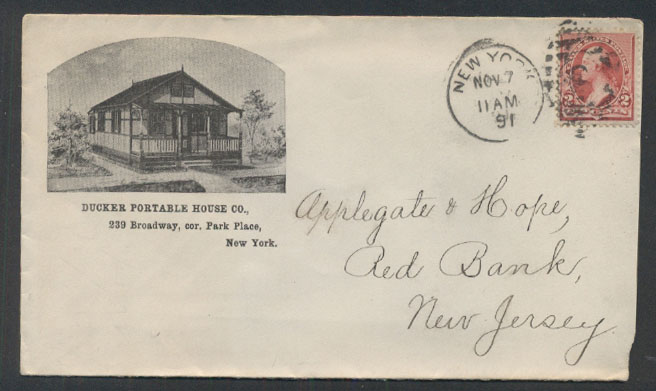 DUCKER PORTABLE HOUSE CO.,
239 Broadway, cor. Park Place,
New York.
NEW YORK
NOV 7
11 AM
91
2 2
Applegate & Hope,
Red Bank,
New Jersey.